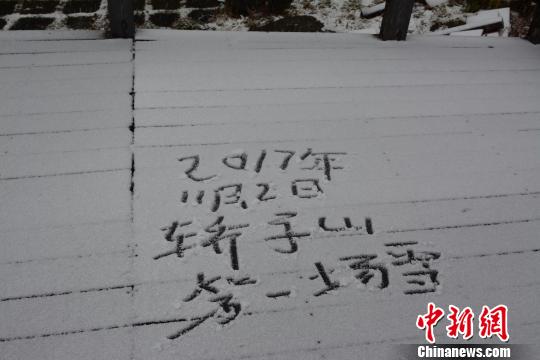 2017年
11月2日
轿子山
第一场雪
中新网
Chinanews.com